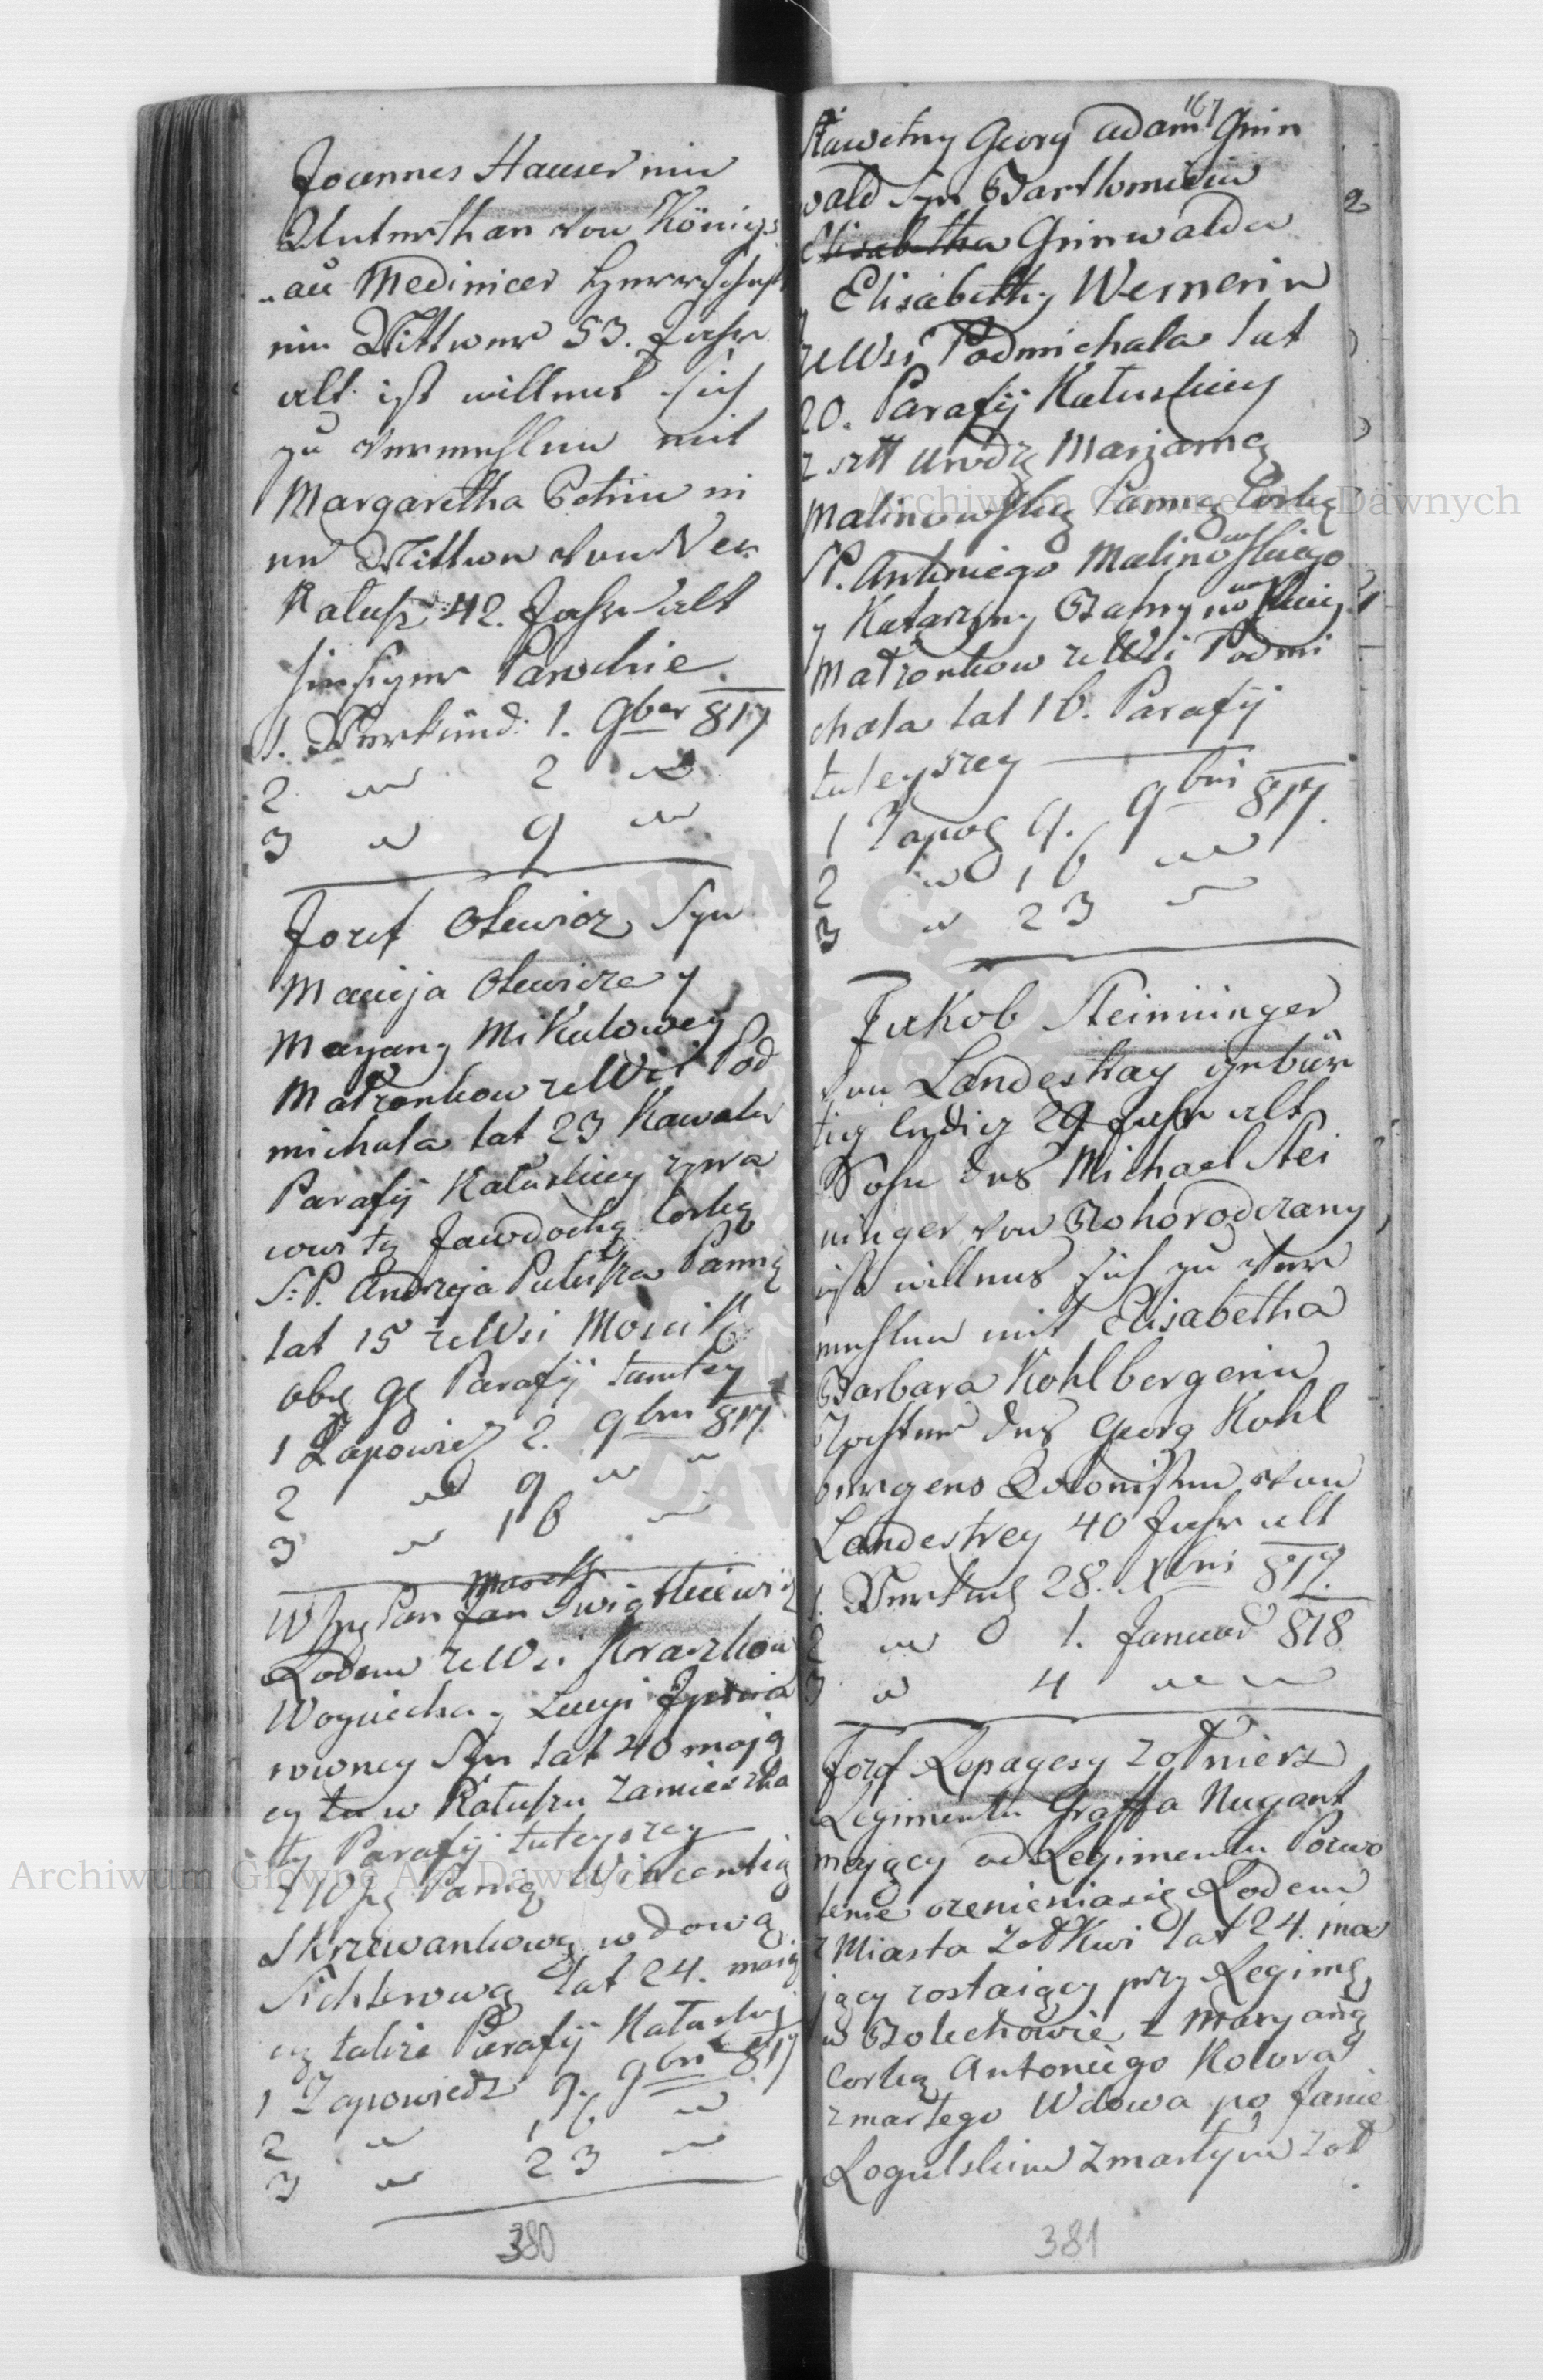 Joannes Hauser ein
Unterthan von Königs
au Medinicer Herrschaft
ein Wittwer 53. Jahr
alt ist willens sich
zu vermehlen mit
Margaretha Petrin ei
ne Wittwe von Neu
Kalusz 42. Jahr alt
hiesiger Parochie
1. Verkünd: 1. 9ber 817
2 " 2 "
3 " 9 "
Jozef Olewicz Syn
Macieja Olewicza y
Maryany Mikulowey
Małzonkow ze Wsi Pod
michala lat 23 Kawaler
Parafij Kaluskiey
Jawdochę Corkę
S: P. Andrzeja Panną
lat 15 ze Wsi
Parafij tamtey
1 Zapowiedz 2. 9bris 817.
2 " 9 " "
3 " 16 "
Marek
W Jmć Pan Jan Swiątkiewicz
Rodem ze Wsi
Woyciecha y Lucyi
Syn lat 40 mają
cy tu w Kałuszu zamieszka
ły Parafij tuteyszey
z Panią Wincentią
Skrzewankową wdową
lat 24. mają
cą także Parafij Kałuskiej
1 Zapowiedz 9. 9bris 817
2 " 16 "
3 " 23 "
380
167
Sławetny Georg Adam Grin
wald Syn Bartłomieia
Elisabetha Grinwalda
Elisabethy Wernerin
ze Wsi Podmichala lat
20. Parafij Kałuskiey
Marjanną
Malinowską Panną Corką
S P. Antoniego Malinowskiego
y Katarzyny
Małzonkow ze Wsi Podmi
chala lat 16. Parafij
tuteyszey
1 Zapow 9. 9bris 817.
2 " 16 "
3 " 23 "
2
Jakob Steininger
von Landestray gebür
tig ledig 29 Jahr alt
Sohn des Michael Stei
ninger von Bohorodczany
ist willens sich zu ver
mehlen mit Elisabetha
Barbara Kohlbergerin
Tochter des Georg Kohl
bergers Kolonisten von
Landestrey 40 Jahr alt
1. Verkünd 28. Xbris 817.
2 " 1. Januar 818
3 " 4 " "
Jozef Lopagesy zołnierz
Regimentu Graffa Nugent
mający od Regimentu Pozwo
lenie ozenienia się Rodem
z Miasta Zołkwi lat 24. ma
jący zostaiący przy Regimę
w Bolechowie z Maryanną
Corką Antoniego Kolora
zmarłego Wdowa po Janie
Rogulskim zmarłym zoł
381
Archiwum Główne Akt Dawnych
Archiwum Główne Akt Dawnych